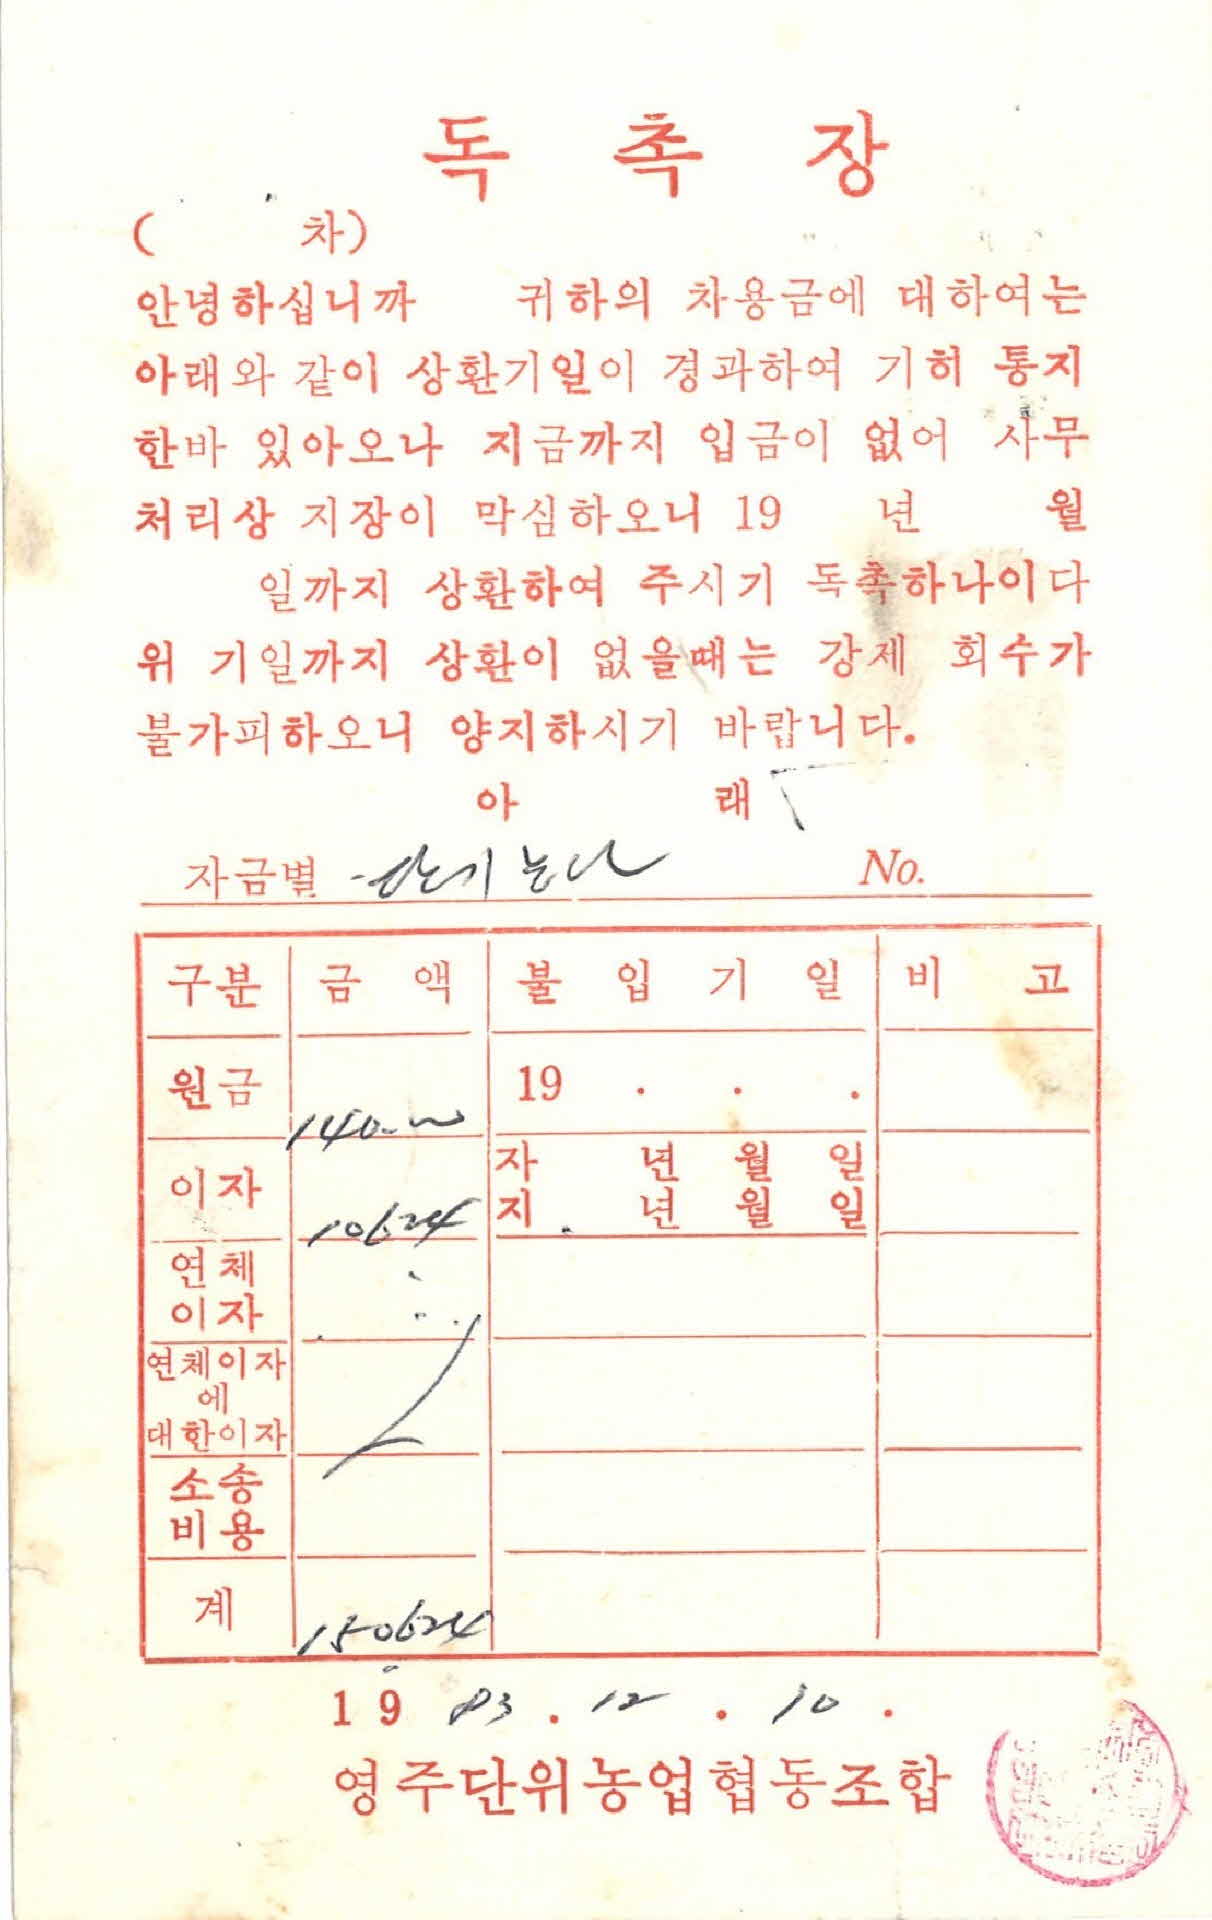 독 촉 장
( 차)
안녕하십니까 귀하의 차용금에 대하여는
아래와 같이 상환기일이 경과하여 기허 통지
한바 있아오나 지금까지 입금이 없어 사무
처리상 지장이 막심하오니 19 년 월
일까지 상환하여 주시기 독촉하나이다
위 기일까지 상환이 없을때는 강제 회수가
불가피하오니 양지하시기 바랍니다.
아 래
자금별 단기농사 No.
구분 금 액 불 입 기 일 비 고
원금 140.000 19 . . .
이자 10624 자 년 월 일
지 년 월 일
연체
이자
연체이자
에
대한이자
소송
비용
계 150624
19 83 . 12 . 10 .
영주단위농업협동조합